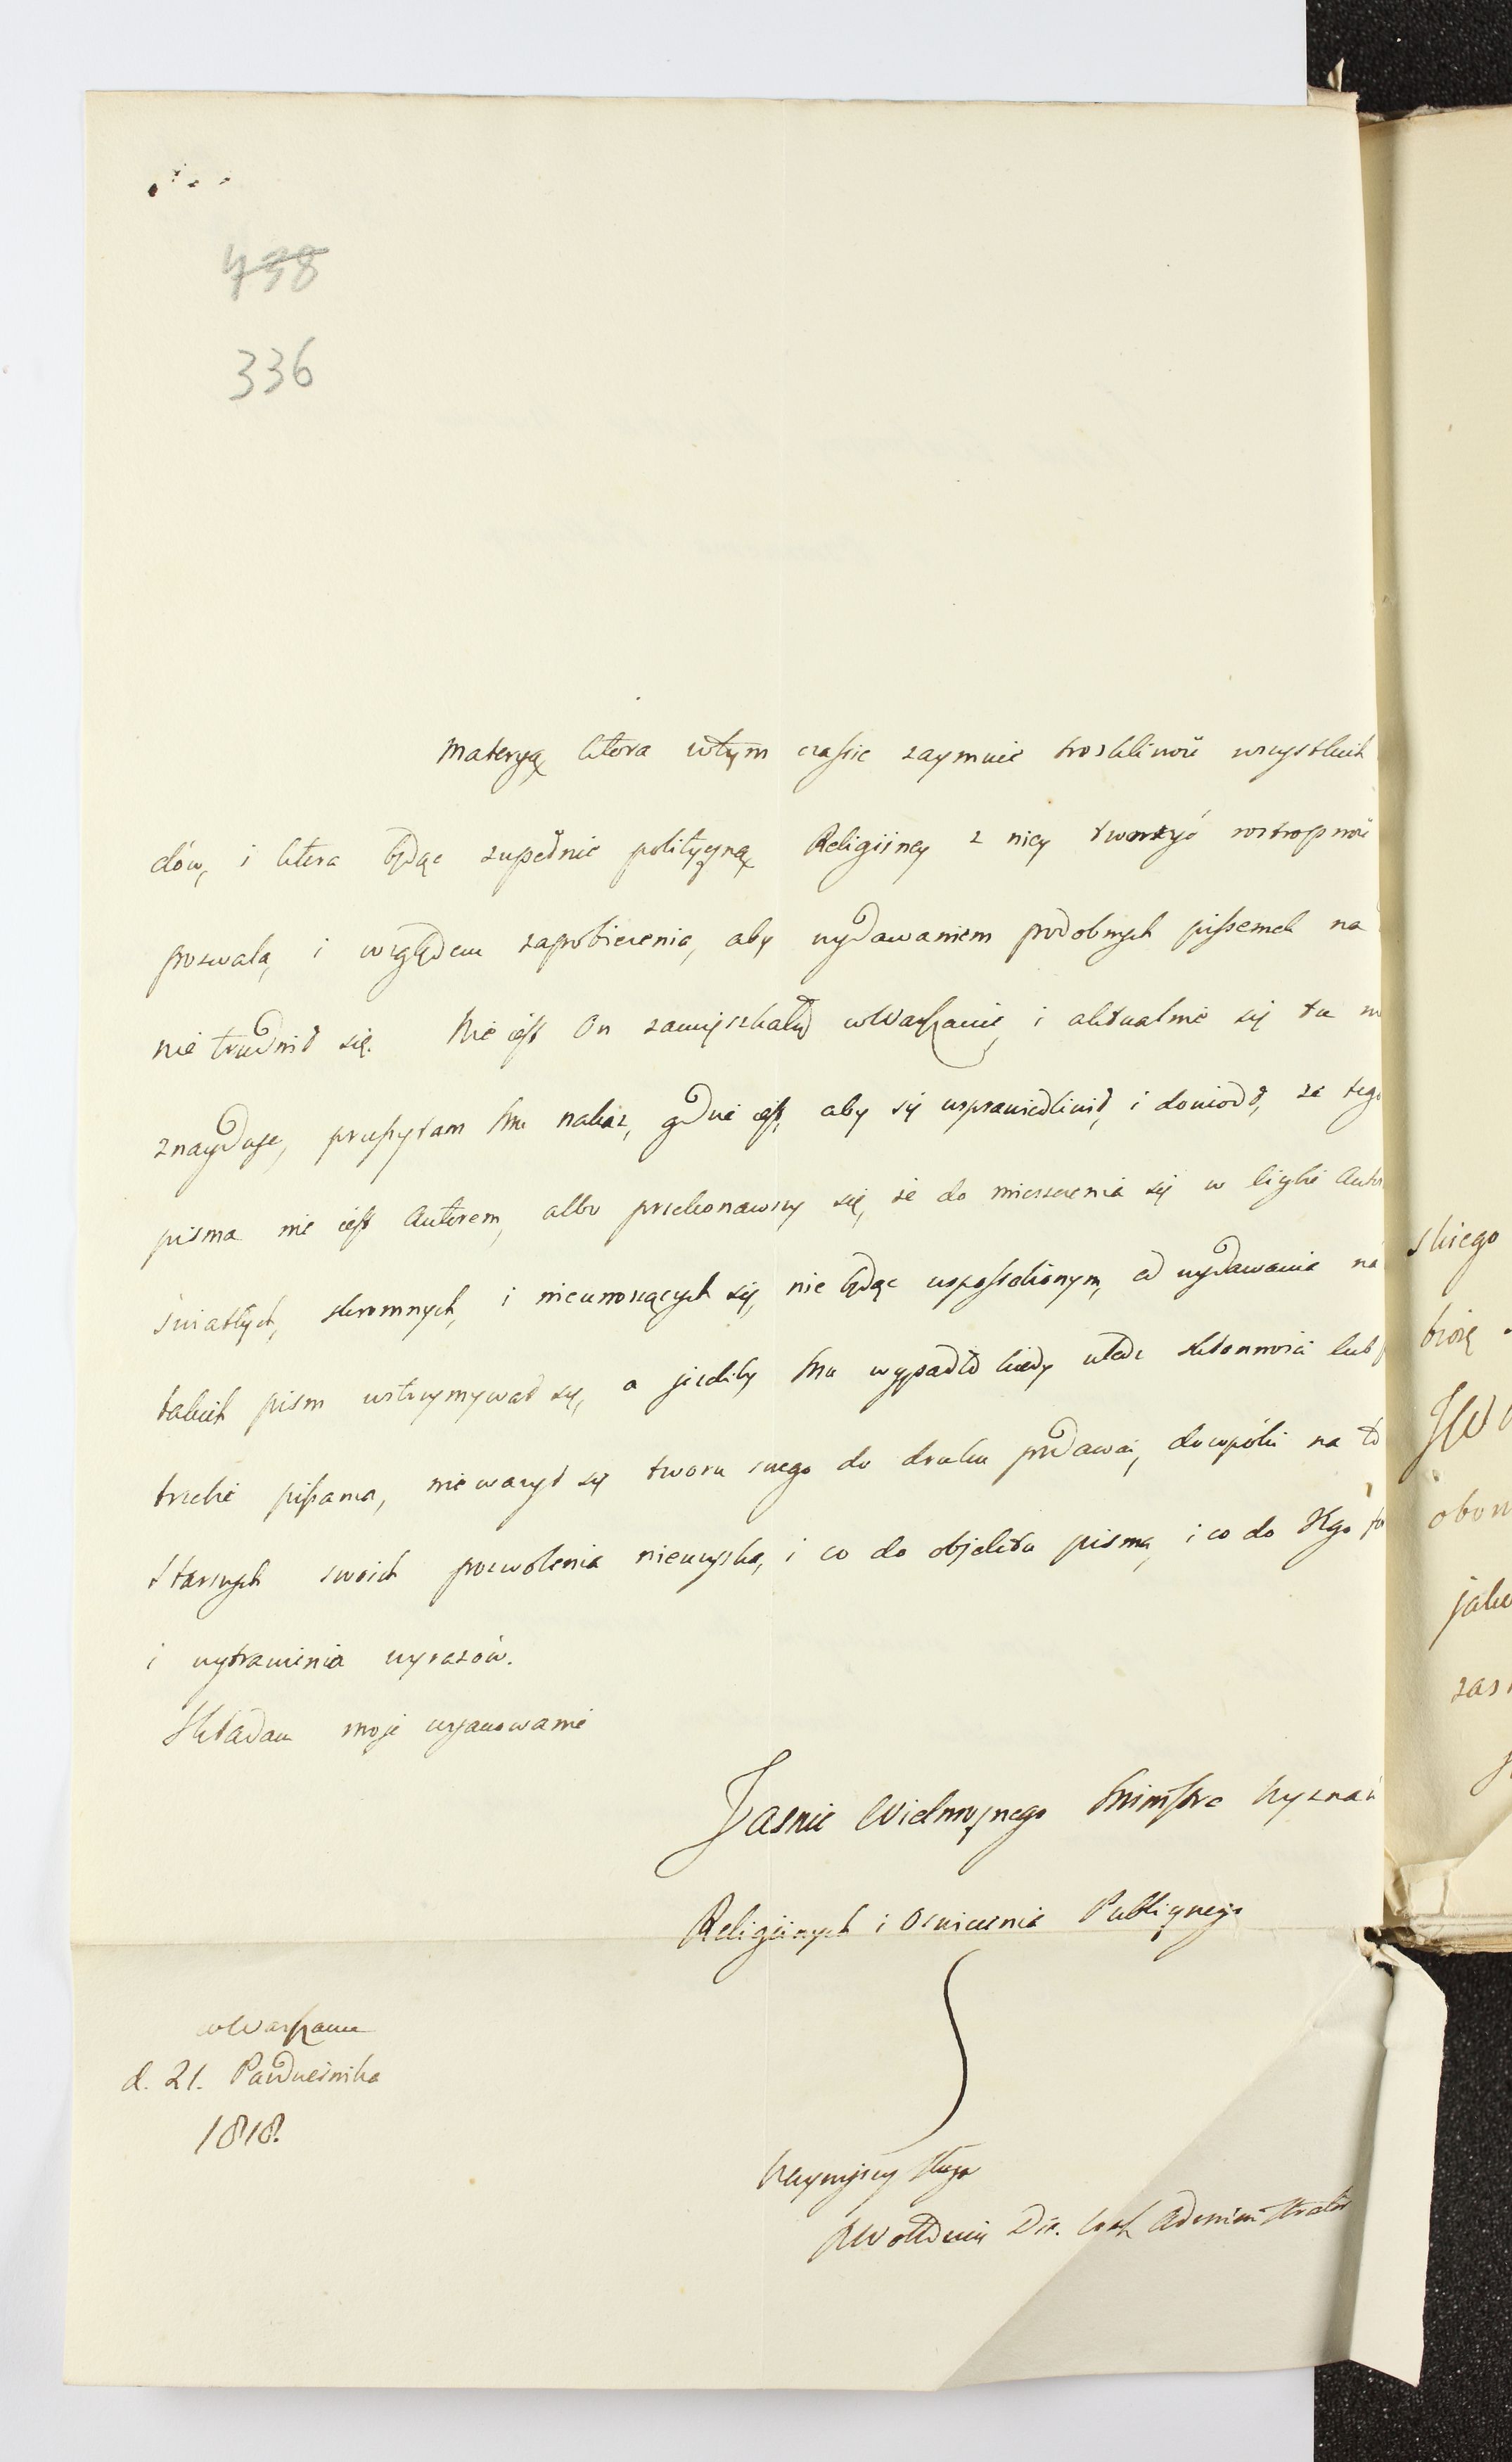 738
336
materyą która wtym czasie zaymuie troskliwość wszystkich
dów, i która będąc zupełnie polityczną Religiiney z niey tworzyć roztropność
pozwala, i względem zapobieżenia, aby wydawaniem podobnych pissemek na
nie trudnił się. Nie iest On zamięszkałÿ w Warszawie, i aktualnie się tu
znayduje, przesyłam Mu nakaz, gdzie iest, aby się usprawiedliwił, i dowiodł, że tego
pisma nie iest Autorem, albo przekonawszy się, że do mieszczenia się w liczbie Auto
światłych, skromnych, i nieunoszących się, nie będąc usposobionym, od wydawania na
takich pism wstrzymywał się, a jeżeliby Mu wypadło kiedy uledz skłonności lub
trzebie pisania, nieważył się tworu swego do druku podawać, dowpóki na to
starszych swoich pozwolenia nieuzyska, i co do objektu pisma, i co do
i wytrawienia wyrazów.
Składam moje uszanowanie
Jasnie Wielmożnego Ministra Wyznań
Religiinych i Oswiecenia Publicznego
w Warszawie
d. 21. Październka
1818.
Naynizszy sługa
Administrator
skiego
biorę
JW
obow
jako
zas